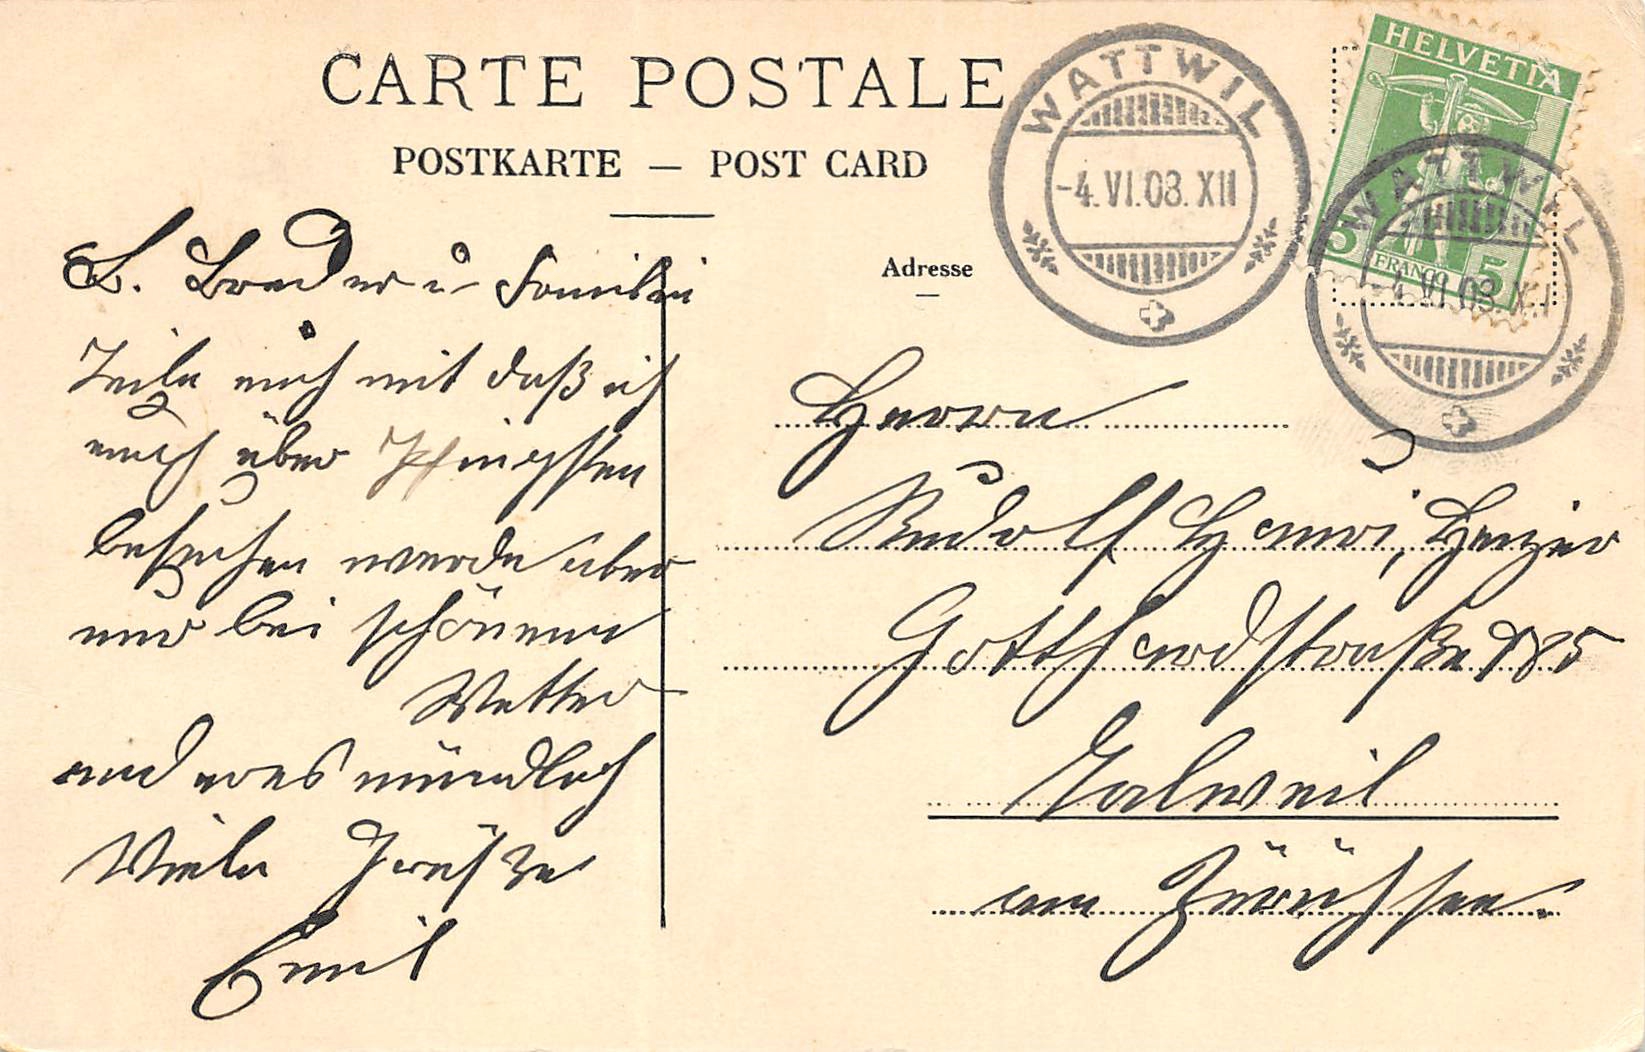 CARTE POSTALE
POSTKARTE — POST CARD
WATTWIL
-4.VI.08.XII
HELVETIA
5 FRANCO 5
WATTWIL
-4.VI.08.XII
Adresse
L. Bruder u Familie
Teile euch mit daß ich
euch über Pfingsten
besuchen werde aber
nur bei schönem
Wetter
and
mündlich
Viele Grüsze
Emil
Herrn
Rudolf Henri, Heizer
Gotthardstraße 785
Talweil
am Zürichsee.